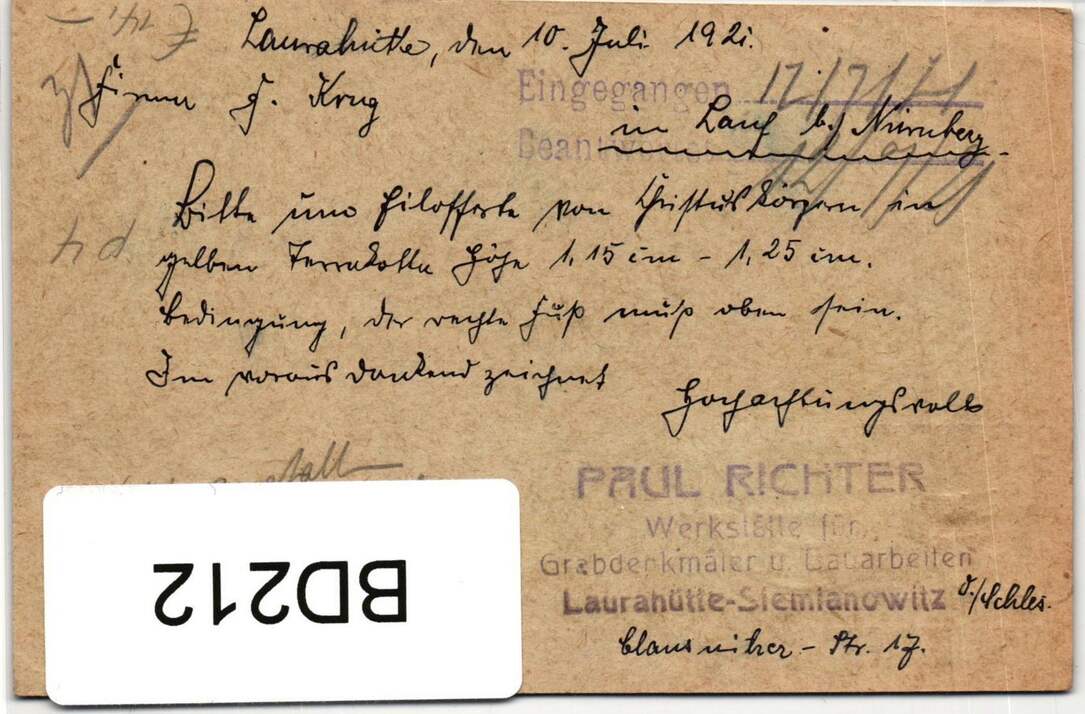 Laurahütte, den 10. Juli 1921.
Firma J. Krug
Eingegangen 12/7/21
in Lauf b. Nürnberg
Bitte um Eilofferte von Christuskörpern in
gelben Terrakotta Höhe 1,15 cm - 1,25 cm.
Bedingung, der rechte Fuß muß oben sein.
Im voraus dankend zeichnet
Hochachtungsvoll
PAUL RICHTER
Werkstätte für
Grabdenkmäler u. Bauarbeiten
Laurahütte-Siemianowitz O./Schles.
Clausnitzer-Str. 17.
BD212